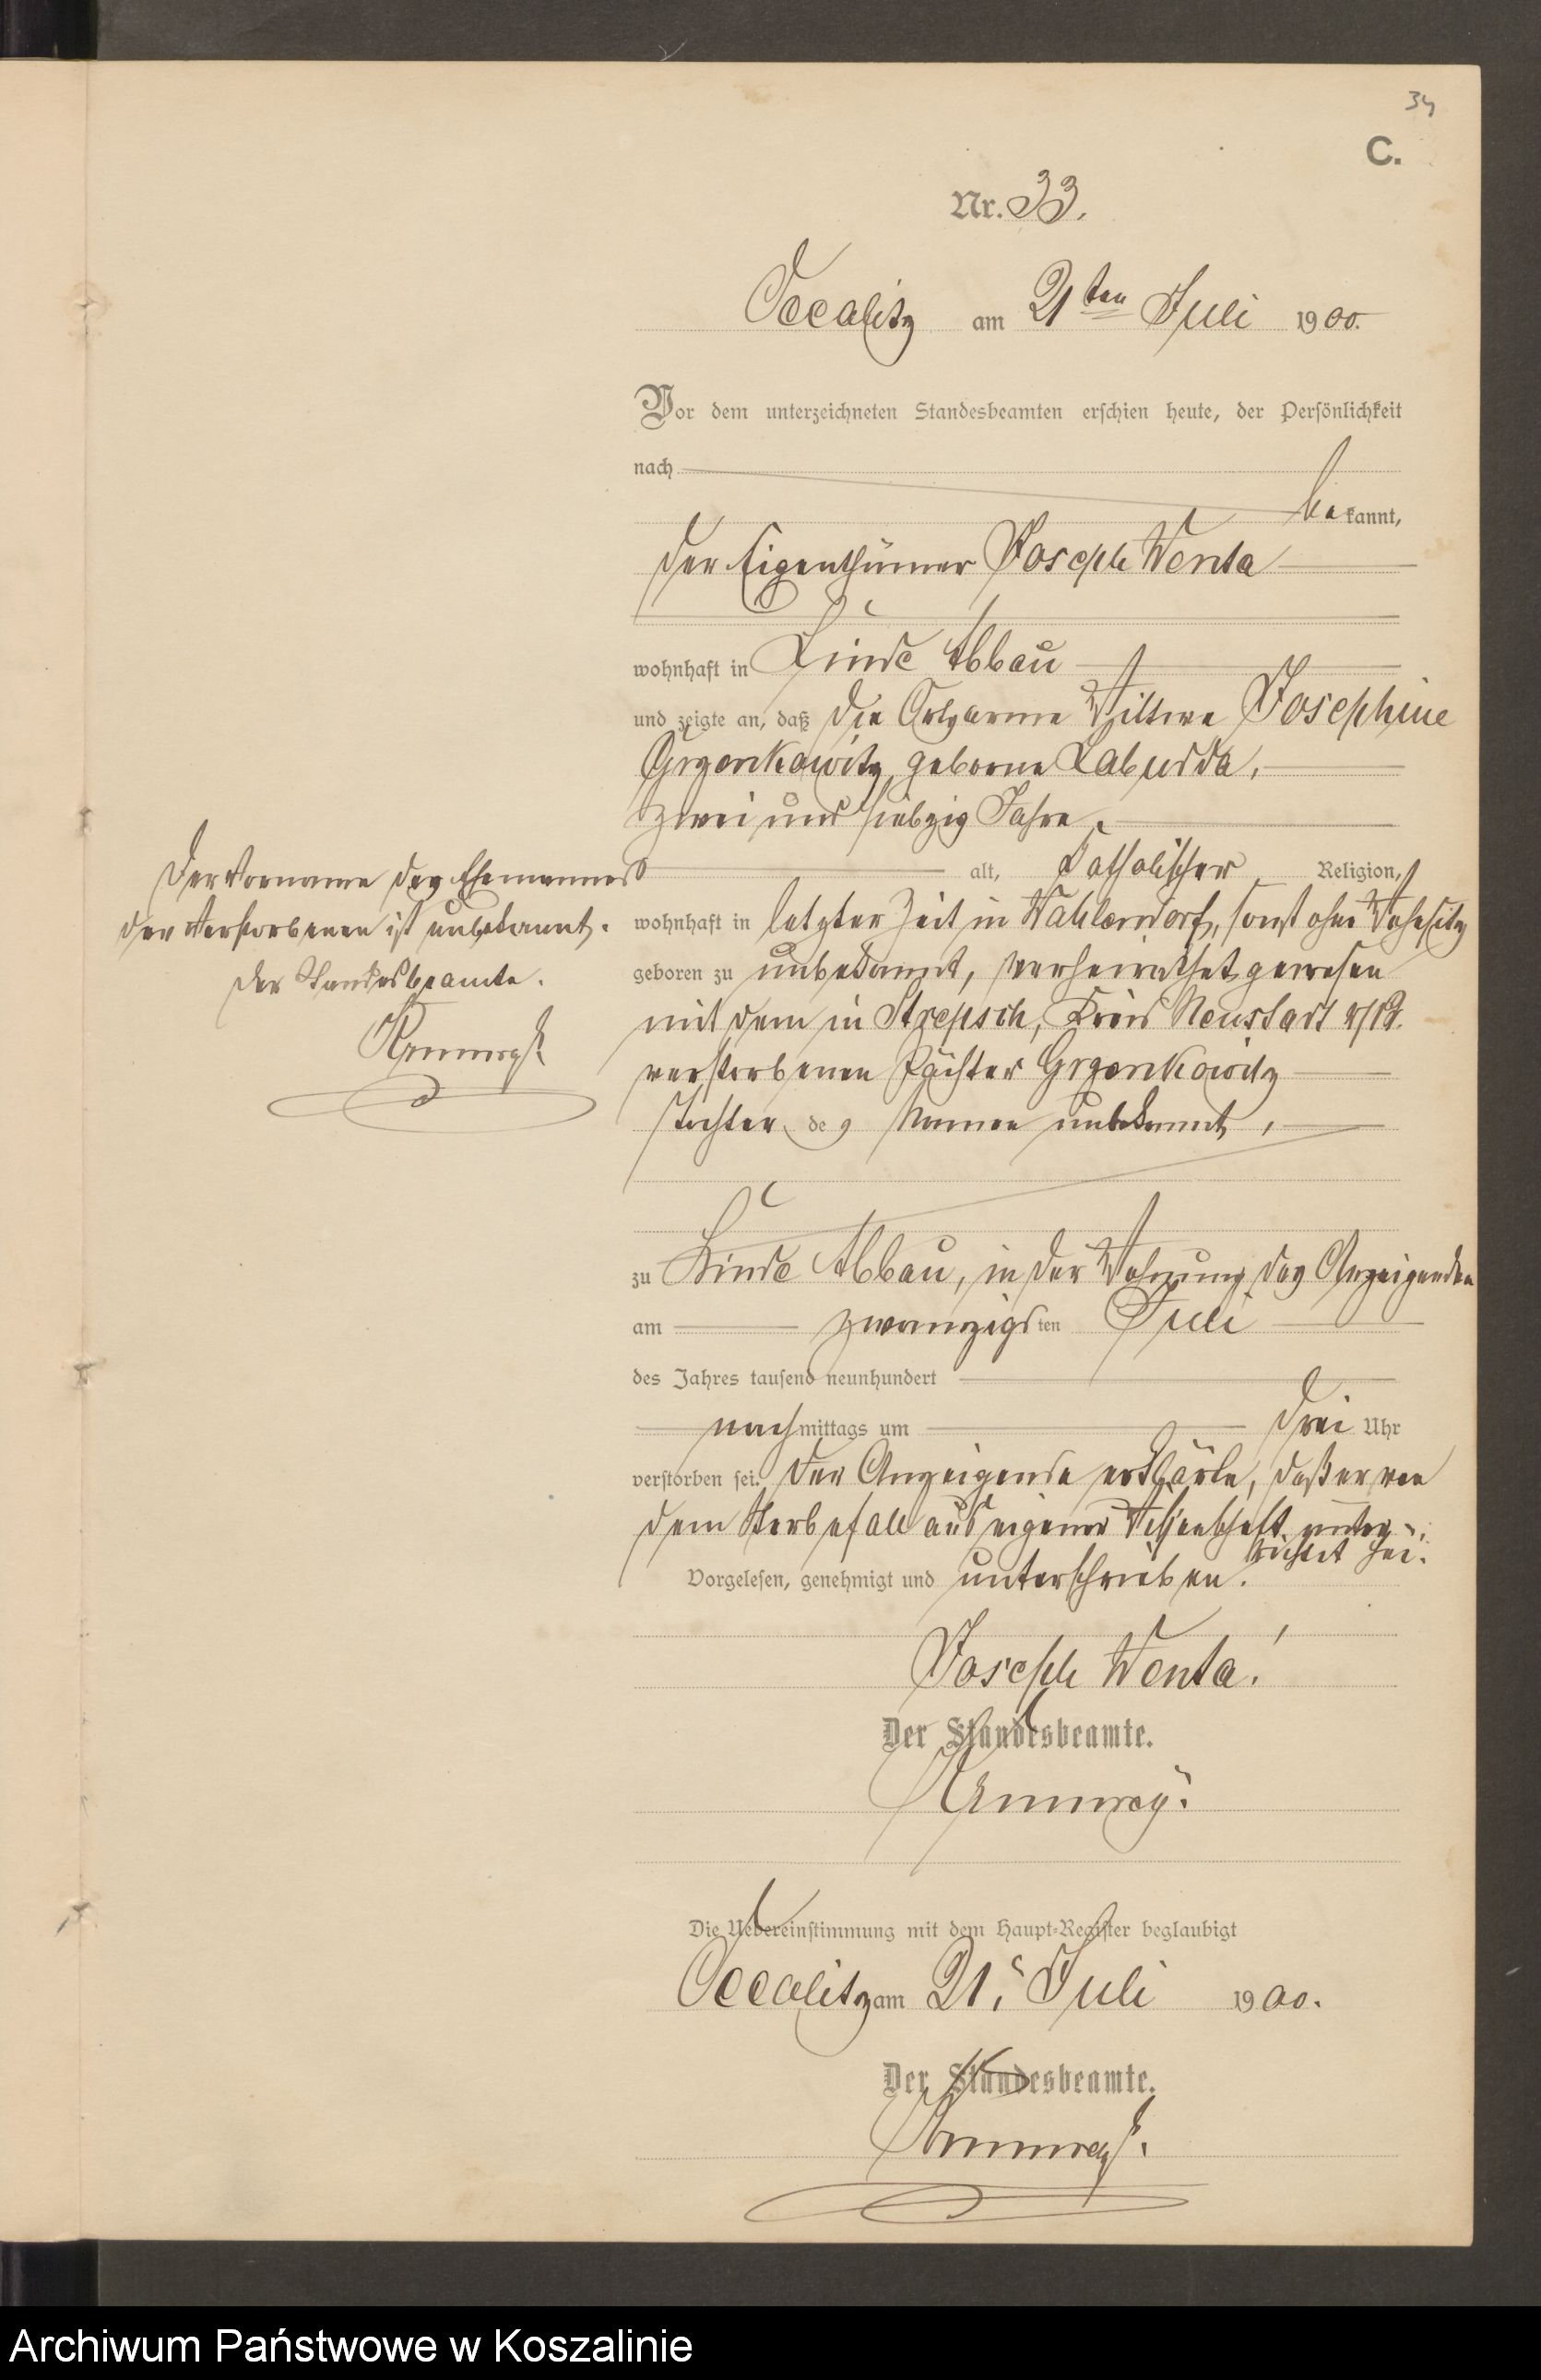 34
C.
Nr. 33.
Occalitz am 21ten Juli 1900.
Vor dem unterzeichneten Standesbeamten erschien heute, der Persönlichkeit
nach
bekannt,
der Eigenthümer Joseph Wenta
wohnhaft in Linde Abbau
und zeigte an, daß die Ortsarme Wittwe Josephine
Grzenkowitz, geborne Labudda,
zwei und siebzig Jahre
alt, katholischer Religion,
wohnhaft in letzter Zeit in Wahlendorf, sonst ohne Wohnsitz
geboren zu unbekannt, verheirathet gewesen
mit dem in Strepsch, Kreis Neustadt W/Pr.
verstorbenen Pächter Grzenkowitz
Tochter des Namen unbekannt,
zu Linde Abbau, in der Wohnung des Anzeigenden
am zwanzigsten Juli
des Jahres tausend neunhundert
nachmittags um drei Uhr
verstorben sei. Der Anzeigende erklärte, daß er von
dem Sterbefall aus eigener Wissenschaft unter-
richtet sei.
Vorgelesen, genehmigt und unterschrieben.
Joseph Wenta.
Der Standesbeamte.
Die Uebereinstimmung mit dem Haupt-Register beglaubigt
Occalitz am 21. Juli 1900.
Der Standesbeamte.
Der Vorname des Ehemannes
der Verstorbenen ist unbekannt.
Der Standesbeamte.
Archiwum Państwowe w Koszalinie